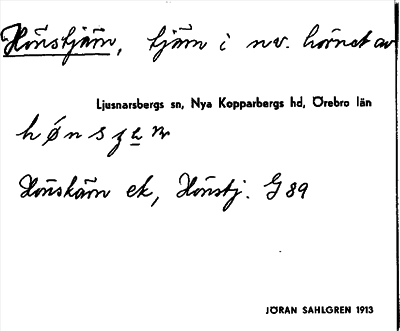 Hönstjärn, tjärn i nv. hörnet av
Ljusnarsbergs sn, Nya Kopparbergs hd, Örebro län
hønsʒɛ̲r
Hönskärn ek, Hönstj. G 89
JÖRAN SAHLGREN 1913